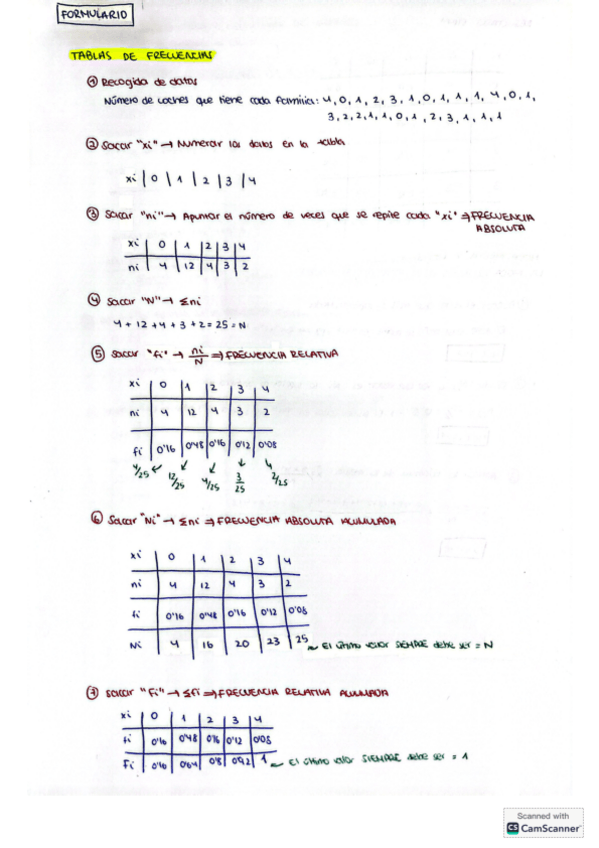 FORMULARIO
TABLAS DE FRECUENCIAS
① Recogida de datos
Número de coches que tiene cada familia: 4, 0, 1, 2, 3, 1, 0, 1, 1, 1, 4, 0, 1,
3, 2, 2, 1, 1, 0, 1, 2, 3, 1, 1, 1
② Sacar "xi" → Numerar los datos en la tabla
xi | 0 | 1 | 2 | 3 | 4
③ Sacar "ni" → Apuntar el número de veces que se repite cada "xi" ⇒ FRECUENCIA
ABSOLUTA
xi | 0 | 1 | 2 | 3 | 4
ni | 4 | 12 | 4 | 3 | 2
④ Sacar "N" → Σni
4 + 12 + 4 + 3 + 2 = 25 = N
⑤ Sacar "fi" → ni/N ⇒ FRECUENCIA RELATIVA
xi | 0 | 1 | 2 | 3 | 4
ni | 4 | 12 | 4 | 3 | 2
fi | 0'16 | 0'48 | 0'16 | 0'12 | 0'08
4/25 12/25 4/25 3/25 2/25
⑥ Sacar "Ni" → Σni ⇒ FRECUENCIA ABSOLUTA ACUMULADA
xi | 0 | 1 | 2 | 3 | 4
ni | 4 | 12 | 4 | 3 | 2
fi | 0'16 | 0'48 | 0'16 | 0'12 | 0'08
Ni | 4 | 16 | 20 | 23 | 25 El último valor SIEMPRE debe ser = N
⑦ Sacar "Fi" → Σfi ⇒ FRECUENCIA RELATIVA ACUMULADA
xi | 0 | 1 | 2 | 3 | 4
fi | 0'16 | 0'48 | 0'16 | 0'12 | 0'08
Fi | 0'16 | 0'64 | 0'8 | 0'92 | 1 El último valor SIEMPRE debe ser = 1
Scanned with
CS CamScanner